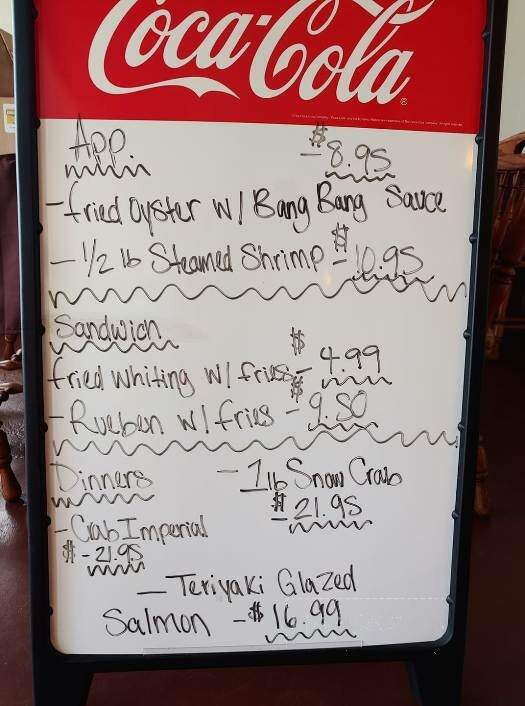 Coca-Cola
App. $ - 8.95
- fried oyster w/ Bang Bang Sauce
- 1/2 lb Steamed Shrimp - $ 10.95
Sandwich
fried whiting w/ fries - $ 4.99
- Rueben w/ fries - $ 9.50
Dinners
- 1 lb Snow Crab
$ - 21.95
- Crab Imperial
$ - 21.95
- Teriyaki Glazed
Salmon - $ 16.99